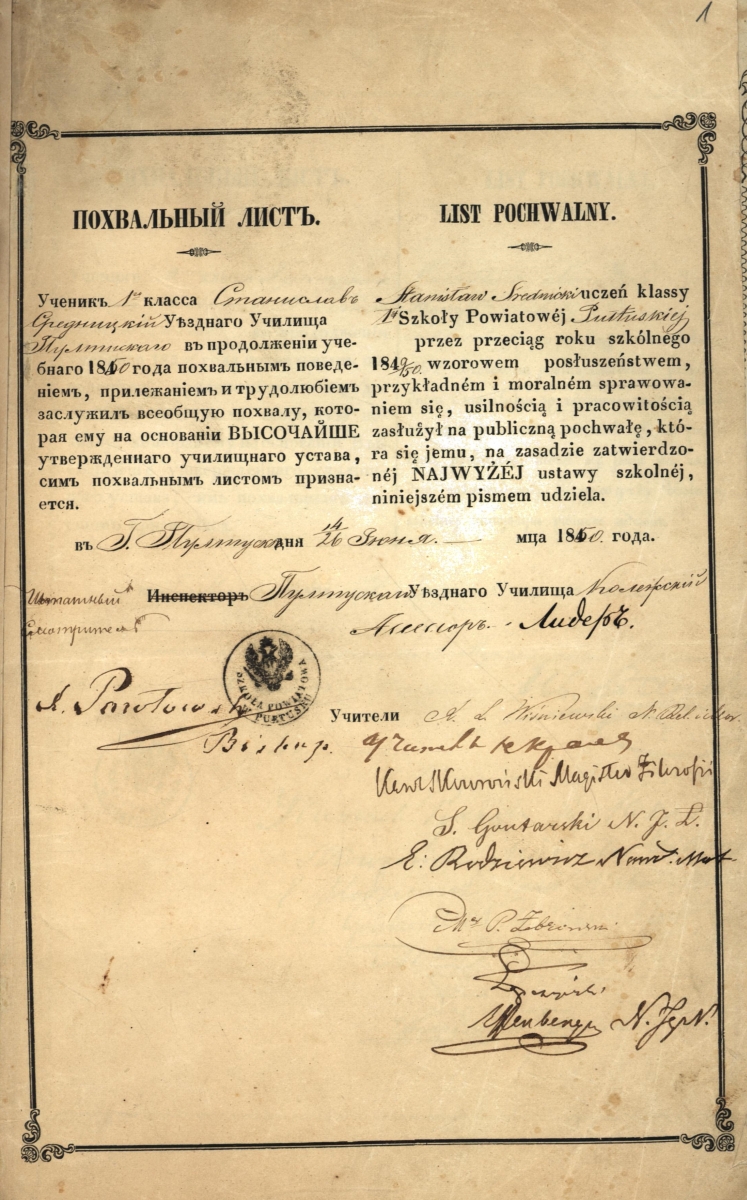 1
ПОХВАЛЬНЫЙ ЛИСТЪ.
Ученикъ 1го класса Станиславъ
Средницкій Уѣзднаго Училища
Пултускаго въ продолженіи уче-
бнаго 1850 года похвальнымъ поведе-
ніемъ, прилежаніемъ и трудолюбіемъ
заслужилъ всеобщую похвалу, кото-
рая ему на основаніи ВЫСОЧАЙШЕ
утвержденнаго училищнаго устава,
симъ похвальнымъ листомъ призна-
ется.
LIST POCHWALNY.
Stanisław Srednicki uczeń klassy
1éj Szkoły Powiatowéj Pułtuskiej
przez przeciąg roku szkólnego
1849/50. wzorowem posłuszeństwem,
przykładném i moralném sprawowa-
niem się, usilnością i pracowitością
zasłużył na publiczną pochwałę, któ-
ra się jemu, na zasadzie zatwierdzo-
néj NAJWYŻÉJ ustawy szkolnéj,
niniejszém pismem udziela.
въ Г. Пултускѣ дня 14/26 Іюня. мца 1850. года.
Штатный Инспекторъ Пултускаго Уѣзднаго Училища Колежскій
Смотритель Ассесоръ. Лидеръ.
SZKOŁA POWIATOWA W PUŁTUSKU
Учители A. L. Wiśniewski N.
Biskup.
Karol Skowroński Magister Filozofii
S. Goutarski N. J. L.
E: Rodziewicz Naucz. Mat
Mr P.
N. J. N.